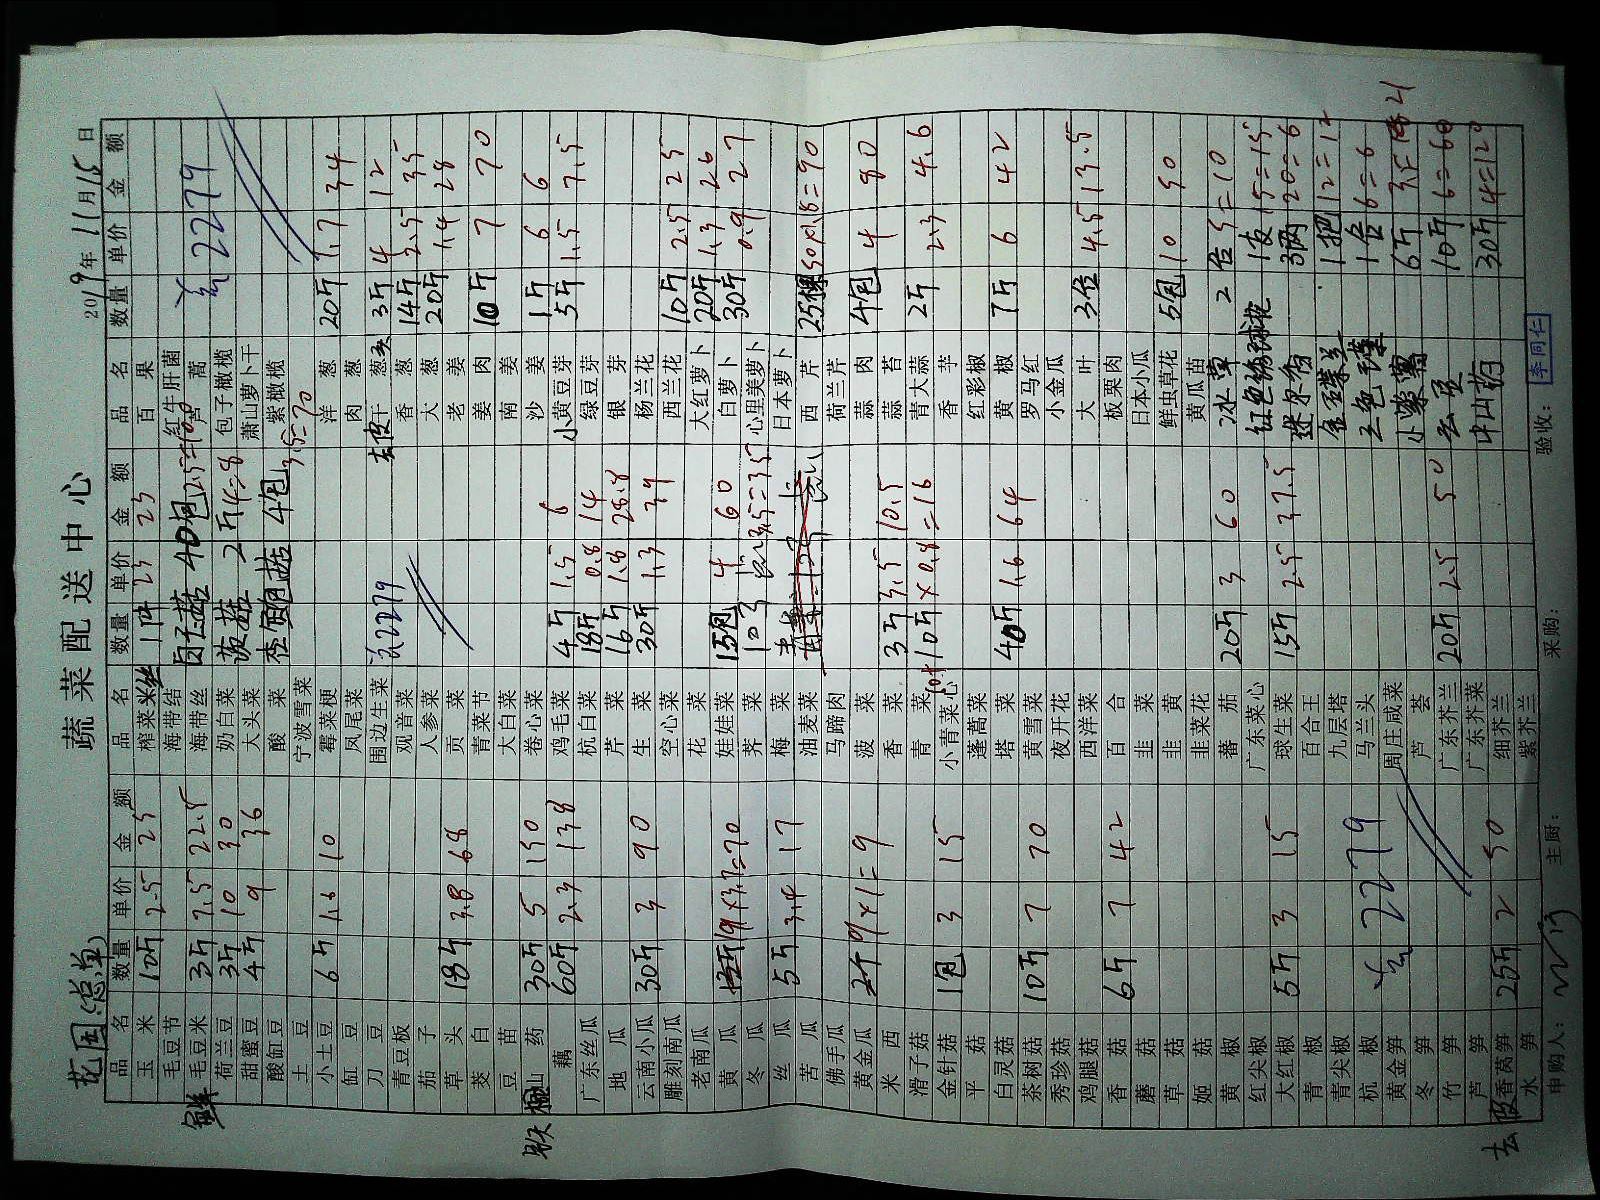 蔬菜配送中心
花园总单
2019年11月15日
品名 数量 单价 金额
玉米 10斤 2.5 25
毛豆节
鲜毛豆米 3斤 7.5 22.5
荷兰豆 3斤 10 30
甜蜜豆 4斤 9 36
酸缸豆
土豆
小土豆 6斤 1.6 10
缸豆
刀豆
青豆板
茄子
草头 18斤 3.8 68
茭白
豆苗
铁棍山药 30斤 5 150
藕 60斤 2.3 138
广东丝瓜
地瓜
云南小瓜 30斤 3 90
雕刻南瓜
老南瓜
黄瓜 19×3.7=70
冬瓜
丝瓜 5斤 3.4 17
苦瓜
佛手瓜
黄金瓜 9×1=9
米西
滑子菇
金针菇 1包 3 15
平菇
白灵菇
茶树菇 10斤 7 70
秀珍菇
鸡腿菇
香菇 6斤 7 42
蘑菇
草菇
姬菇
黄椒
红尖椒
大红椒 5斤 3 15
青椒
青尖椒
杭椒 2279
黄金笋
冬笋
竹笋
芦笋
去皮香莴笋 25斤 2 50
水笋
品名 数量 单价 金额
榨菜丝 1件 25 25
海带结
海带丝 白玉菇 40包 2.5=100
奶白菜
大头菜 茨菇 2斤 4=8
酸菜 杏鲍菇 4包 3.5=70
宁波雪菜
霉菜梗
凤尾菜
围边生菜 2279
观音菜
人参菜
贡菜
青菜节
大白菜
卷心菜
鸡毛菜 4斤 1.5 6
杭白菜 18斤 0.8 14
芹菜 16斤 1.8 28.8
生菜 30斤 1.3 39
空心菜
花菜
娃娃菜 15包 4 60
荠菜 3.5=35
梅菜
油麦菜
马蹄肉
菠菜
香菜 3斤 3.5 10.5
青菜
小青菜心 10斤×0.8=16
蓬蒿菜
塔菜
黄雪菜 40斤 1.6 64
夜开花
西洋菜
百合
韭菜
韭黄
韭菜花
蕃茄 20斤 3 60
广东菜心
球生菜 15斤 2.5 37.5
百合王
九层塔
马兰头
周庄咸菜
芦荟
广东芥兰 20斤 2.5 50
广东芥菜
细芥兰
紫芥兰
品名 数量 单价 金额
百果
红牛肝菌
芦蒿 2279
包子橄榄
萧山萝卜干
紫橄榄
洋葱 20斤 1.7 34
肉葱
去皮干葱头 3斤 4 12
香葱 14斤 2.5 35
大葱 20斤 1.4 28
老姜
姜肉 10斤 7 70
南姜
沙姜 1斤 6 6
小黄豆芽 5斤 1.5 7.5
绿豆芽
银芽
杨兰花
西兰花 10斤 2.5 25
大红萝卜 20斤 1.3 26
白萝卜 30斤 0.9 27
心里美萝卜
日本萝卜
西芹 25棵 50×1.8=90
荷兰芹
蒜肉 4包 4 80
蒜苔
青大蒜 2斤 2.3 4.6
香芋
红彩椒
黄椒 7斤 6 42
罗马红
小金瓜
大叶 3位 4.5 13.5
板栗肉
日本小瓜
鲜虫草花 5包 10 50
黄瓜苗
冰草 2盒 5=10
红色绣球花 1支 15=15
迷尔香 3两 20=6
金盏菜兰 1把 12=12
三色堇 1盒 6=6
小紫薯 6斤 3.5 21
云豆 10斤 6=60
中山药 30斤 4=120
申购人： 主厨： 采购： 验收： 李同仁